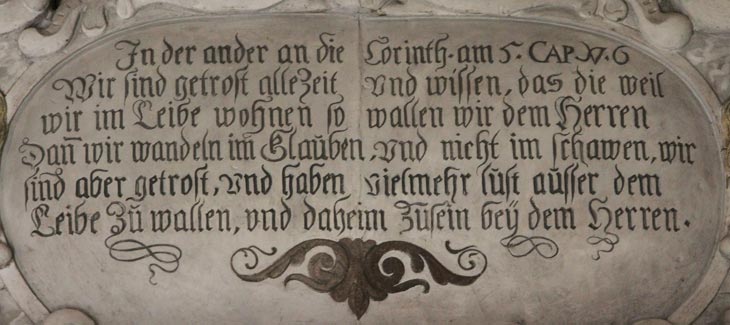 In der ander an die Corinth. am 5. CAP. V. 6
Wir sind getrost allezeit vnd wissen, das die weil
wir im Leibe wohnen so wallen wir dem Herren
Dan̄ wir wandeln im Glauben, vnd nicht im schawen, wir
sind aber getrost, vnd haben vielmehr lust ausser dem
Leibe zu wallen, vnd daheim zusein beÿ dem Herren.